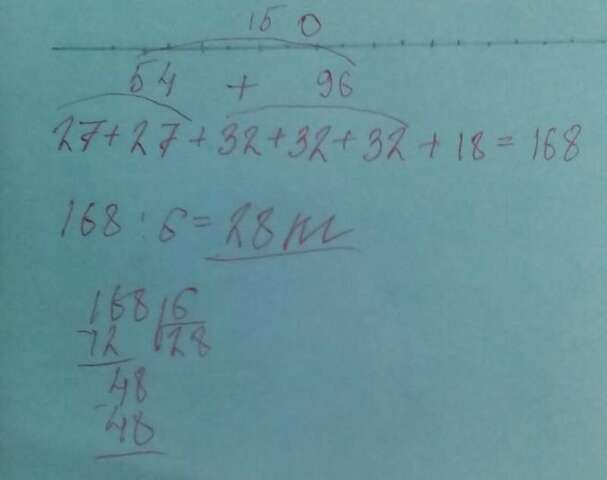 150
54 + 96
27+27+32+32+32+18=168
168:6=28
168 6
12 28
48
48